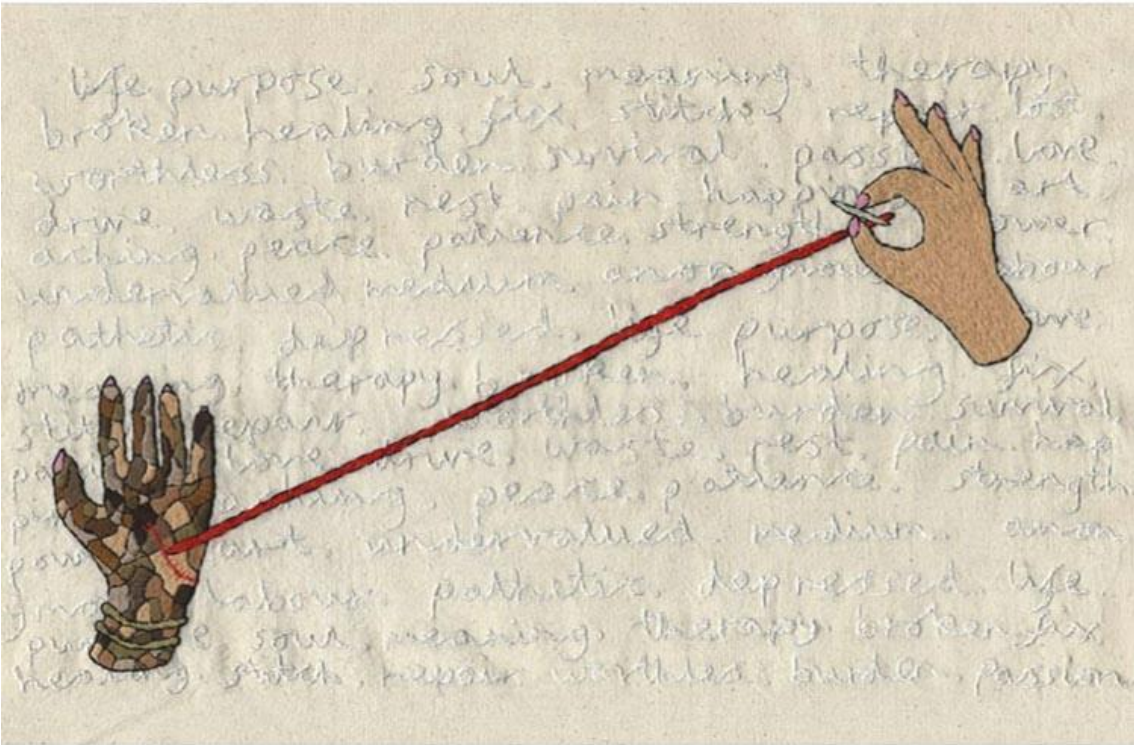 life purpose. soul. meaning. therapy.
broken. healing. fix. stitch. repair. lost.
worthless. burden. survival. passion. love.
drive. waste. rest. pain. happin art
aching. peace. patience. strength. ower.
undervalued medium. anon ymou abour
pathetic depressed. life purpose.
meaning. therapy. broken. healing fix.
stit epair. worthless. burden. survival.
pa love. drive. waste. rest. pain. hap
pin aching. peace. patience. strength
pow art. undervalued. medium. anon
ymo labour. pathetic. depressed. life.
pur e soul meaning. therapy. broken. fix
healing. stitch. repair. worthless. burden. passion